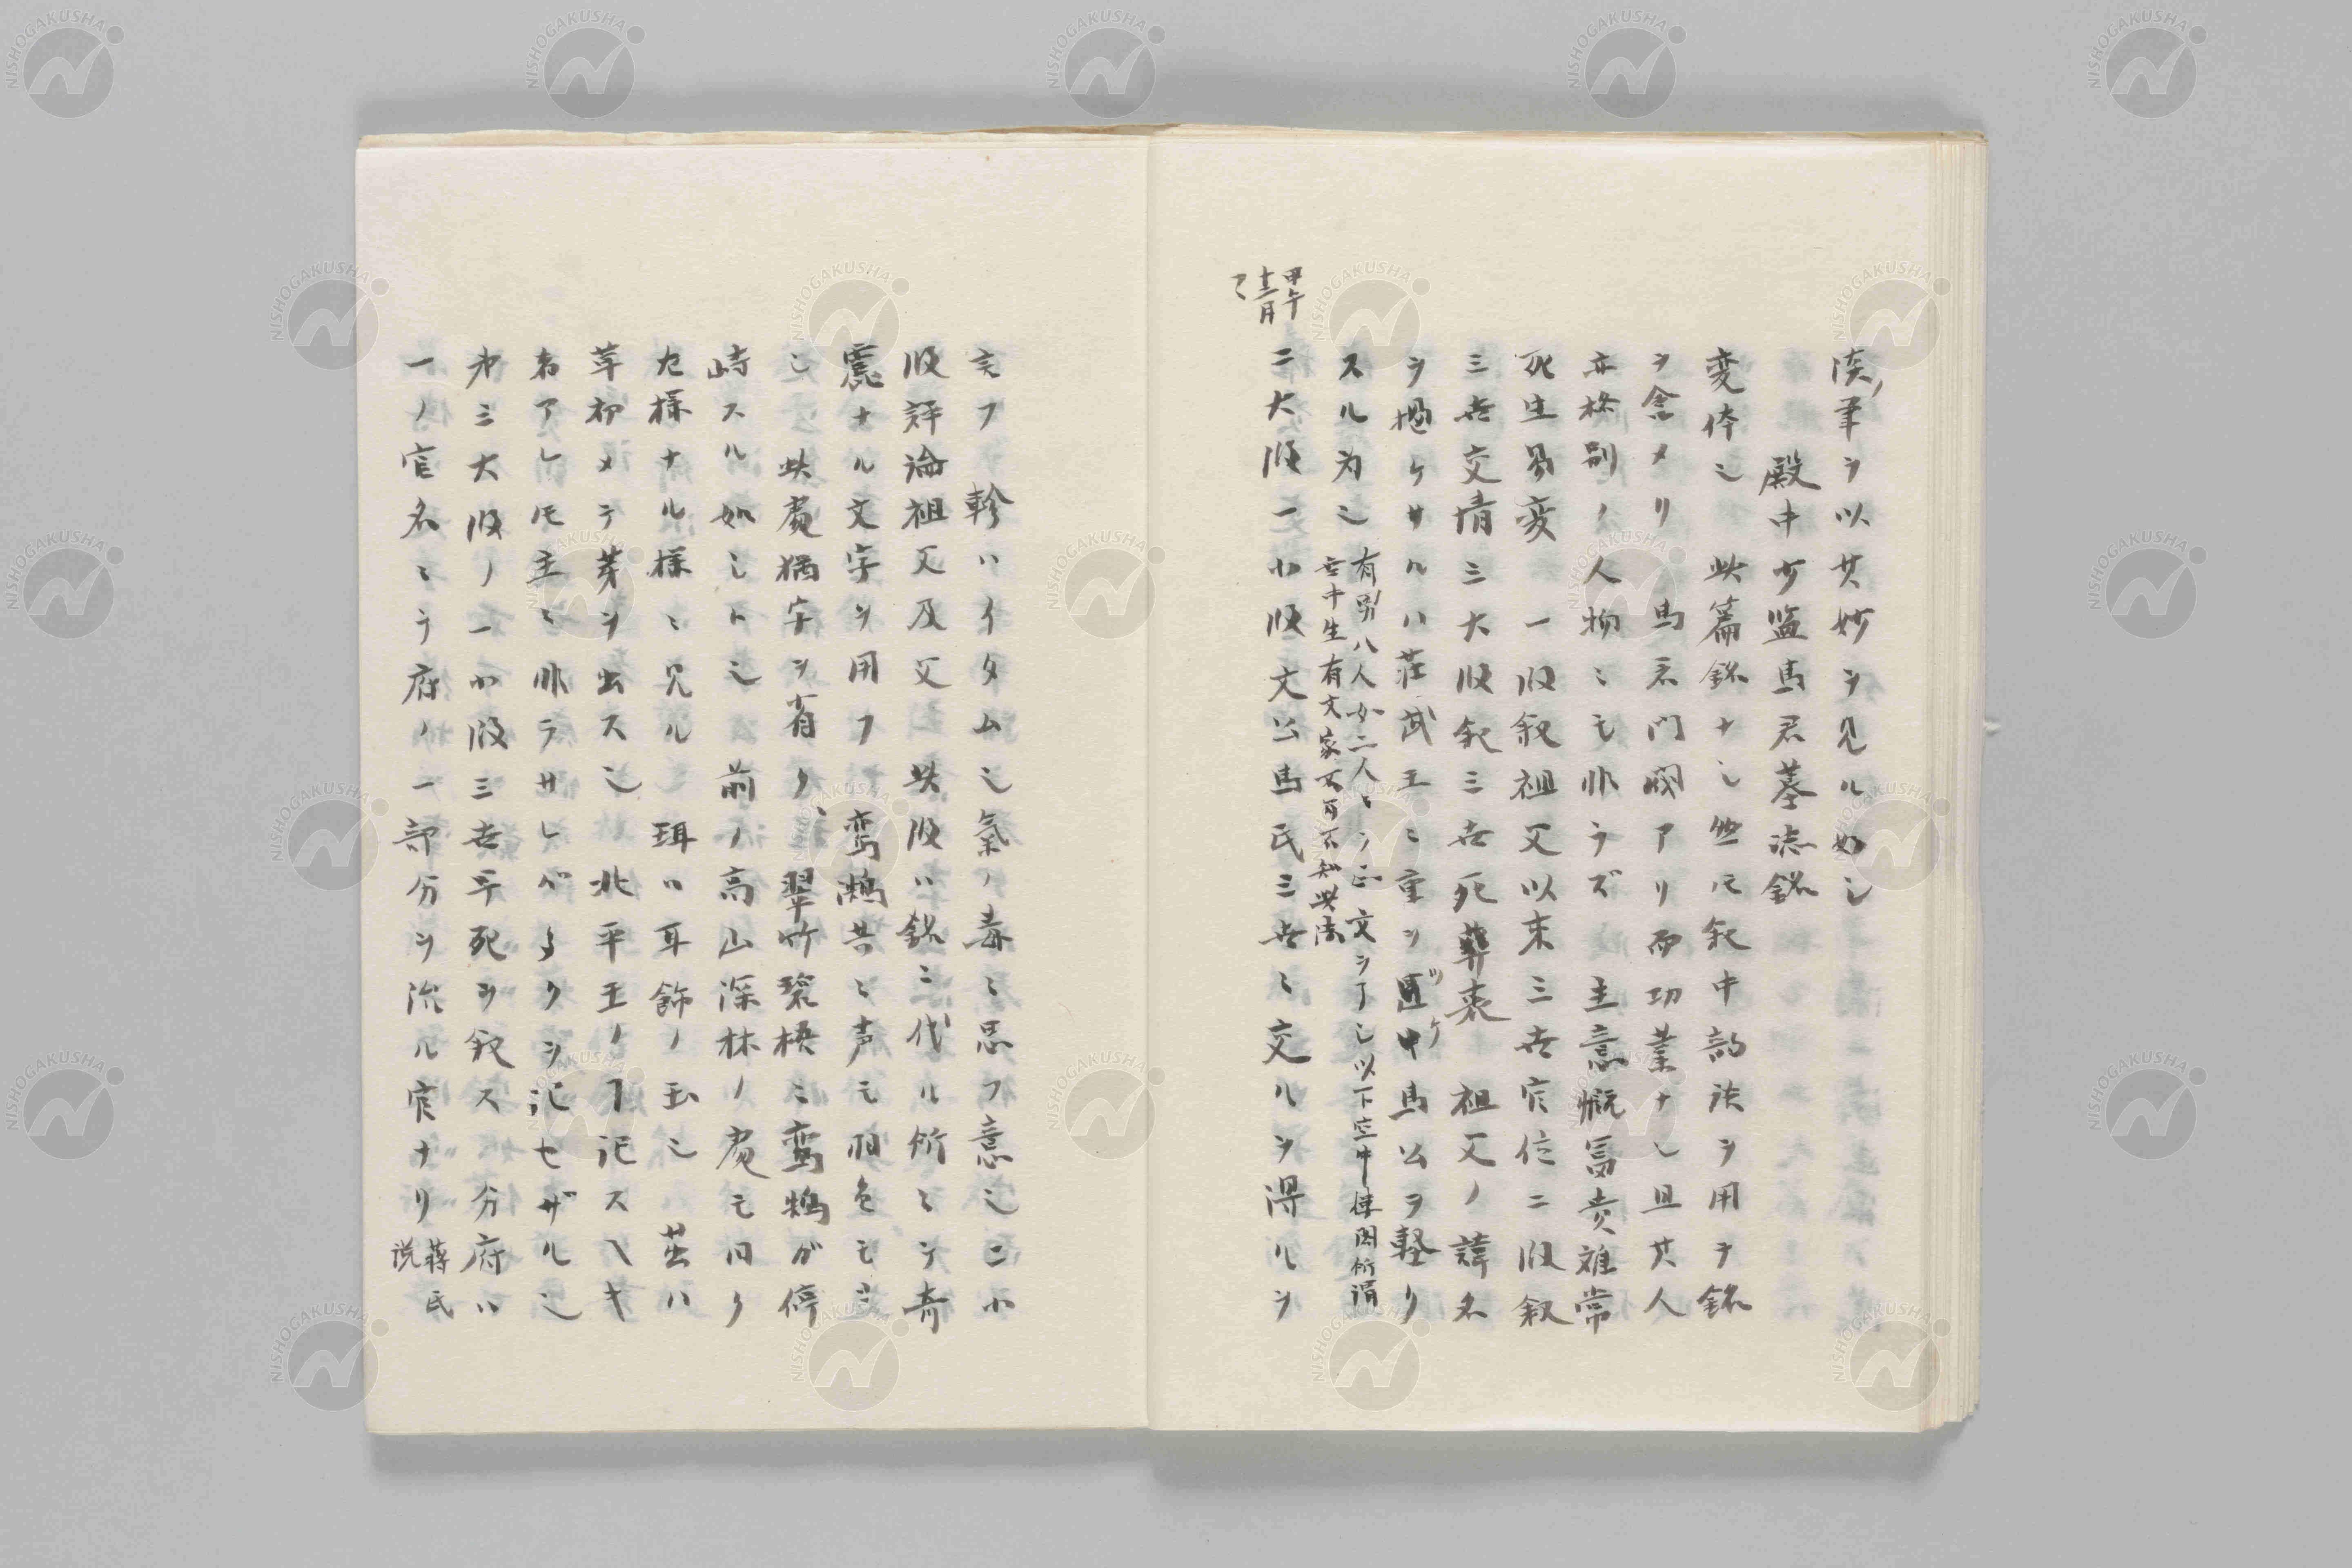 漢筆ヲ以其妙ヲ見ル如シ
殿中少監馬君墓誌銘
変体ニ 此篇銘ナシ然モ叙中韵法ヲ用テ銘
ヲ含メリ 馬君門閥アリ而功業ナシ且其人
亦格別ノ人物ニモ非ラズ 主意慨冨貴難常
死生易変 一段叙祖父以来三世官位ニ段叙
三世交情三大段叙三世死葬哀 祖父ノ諱名
ヲ掲ケサルハ荘武王ニ重ヲ置ツケ中馬公ヲ軽リ
スル为ニ
有男八人女二人ヒラ正文ヲ了シ以下空中楼閣所謂
無中生有文家不可不知此法
甲午
十二月
了
二大段一小段文公馬氏三世ニ交ルヲ得ルヲ
言フ 軫ハイタムニ氣ノ毒ニ思フ意ニ二小
段評論祖父及父 此段ハ銘ニ代ル所ニシテ奇
麗ナル文字ヲ用フ 鸞鵠共ニ声モ羽色モヨ
シ 此處猶字ヲ省ク、翠竹碧梧ニ鸞鵠ガ停
峙スル如シトニ 前ノ高山深林ノ處モ同ク
左様ナル様ニ見ル 珥ハ耳飾ノ玉ニ 茁ハ
草初メテ芽ヲ出スニ 北平王ノ丁記スヘキ
者アレモ主ニ非ラサレバ多クヲ記セザルニ
第三大段ノ一小段三世平死ヲ叙ス 分府ハ
一ノ官名ニラ府ノ一部分ヲ治ル官ナリ
蒋氏
説